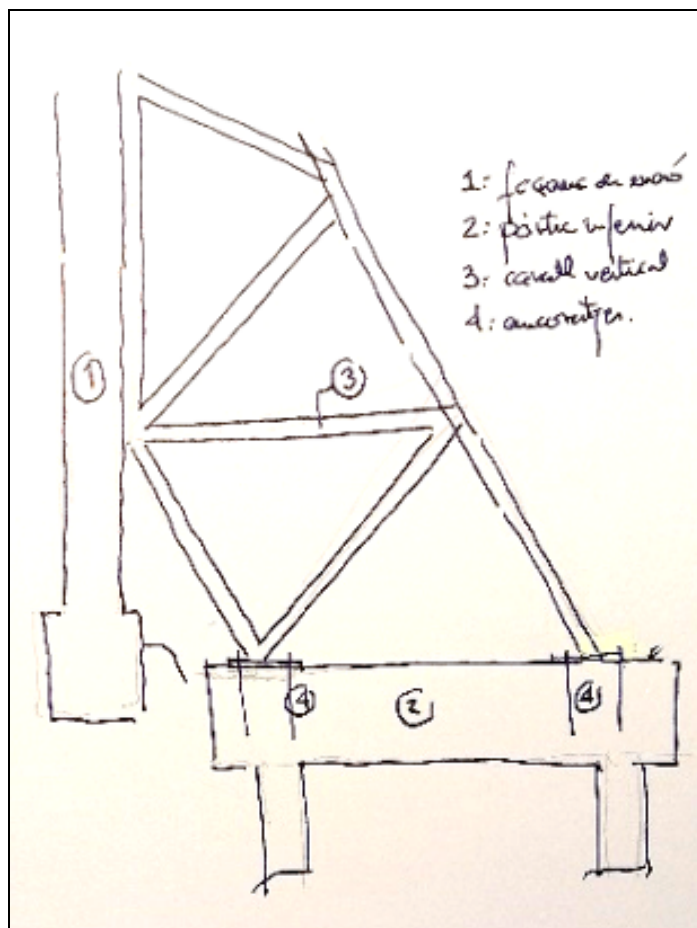 1: façana de maó
2: pòrtic inferior
3: cavall vertical
4: ancoratges.
3
1
4
2
4